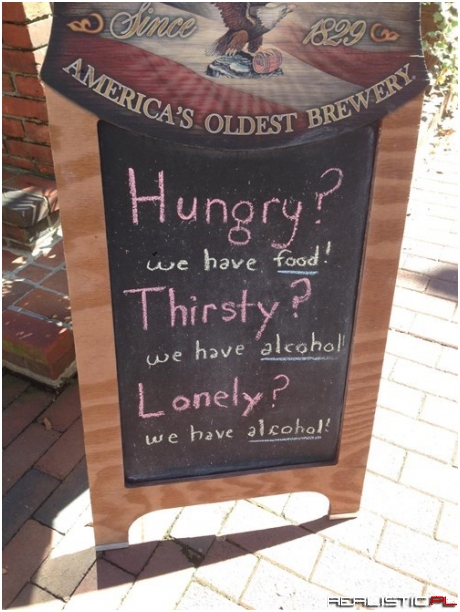 Since 1829
AMERICA'S OLDEST BREWERY.
Hungry?
we have food!
Thirsty?
we have alcohol!
Lonely?
we have alcohol!
REALISTIC.PL